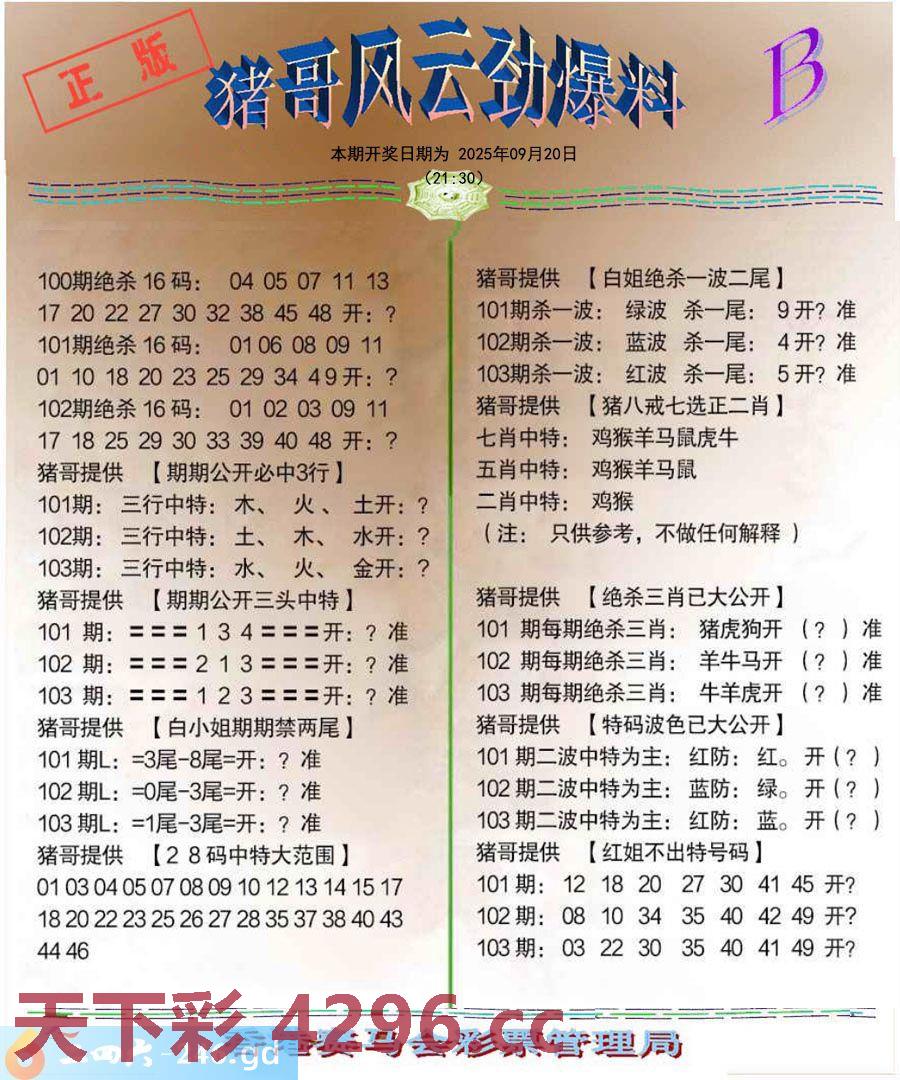 正版
猪哥风云劲爆料
B
本期开奖日期为 2025年09月20日
(21:30)
100期绝杀16码： 04 05 07 11 13
17 20 22 27 30 32 38 45 48 开：？
101期绝杀16码： 01 06 08 09 11
01 10 18 20 23 25 29 34 49开：？
102期绝杀16码： 01 02 03 09 11
17 18 25 29 30 33 39 40 48 开：？
猪哥提供 【期期公开必中3行】
101期：三行中特：木、 火、 土开：？
102期：三行中特：土、 木、 水开：？
103期：三行中特：水、 火、 金开：？
猪哥提供 【期期公开三头中特】
101 期：===1 3 4===开：？准
102 期：===2 1 3===开：？准
103 期：===1 2 3===开：？准
猪哥提供 【白小姐期期禁两尾】
101期L：=3尾-8尾=开：？准
102期L：=0尾-3尾=开：？准
103期L：=1尾-3尾=开：？准
猪哥提供 【28码中特大范围】
01 03 04 05 07 08 09 10 12 13 14 15 17
18 20 22 23 25 26 27 28 35 37 38 40 43
44 46
猪哥提供 【白姐绝杀一波二尾】
101期杀一波： 绿波 杀一尾： 9开？准
102期杀一波： 蓝波 杀一尾： 4开？准
103期杀一波： 红波 杀一尾： 5开？准
猪哥提供 【猪八戒七选正二肖】
七肖中特： 鸡猴羊马鼠虎牛
五肖中特： 鸡猴羊马鼠
二肖中特： 鸡猴
（注： 只供参考，不做任何解释）
猪哥提供 【绝杀三肖已大公开】
101 期每期绝杀三肖： 猪虎狗开 （？）准
102 期每期绝杀三肖： 羊牛马开 （？）准
103 期每期绝杀三肖： 牛羊虎开 （？）准
猪哥提供 【特码波色已大公开】
101期二波中特为主： 红防： 红。开（？）
102期二波中特为主： 蓝防： 绿。开（？）
103期二波中特为主： 红防： 蓝。开（？）
猪哥提供 【红姐不出特号码】
101期： 12 18 20 27 30 41 45 开？
102期： 08 10 34 35 40 42 49 开？
103期： 03 22 30 35 40 41 49 开？
天下彩 4296.cc
马会彩票管理局